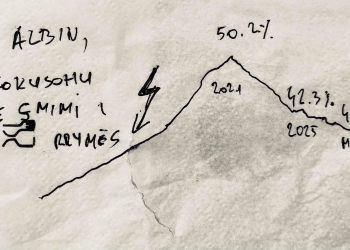 ALBIN,
50.2%
OKUSOHU
E SMIMI I
RRYMËS
2021
42.3%
2025
4
M